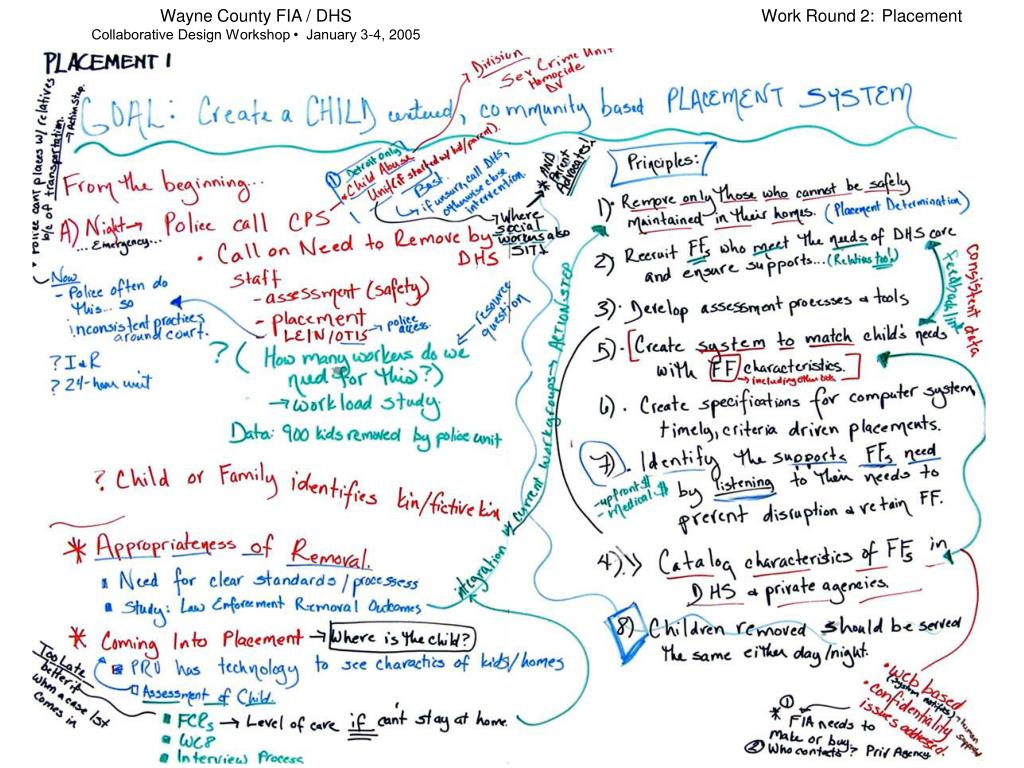 Wayne County FIA / DHS
Collaborative Design Workshop • January 3-4, 2005
Work Round 2: Placement
PLACEMENT 1
Police can't place w/ relatives
b/c of transportation. → Action Step.
GOAL: Create a CHILD centered, community based PLACEMENT SYSTEM
Division
Sex Crime Unit
Homocide
DV
From the beginning...
A) Night → Police call CPS
... Emergency...
① Detroit Only
• Child Abuse
Unit (if started w/ bd/parent).
Best:
if unsure, call DHS,
otherwise close
intervention.
* AND
Parent
Advocates!
→ Where
social
workers also
SIT!
• Call on Need to Remove by
DHS
Staff
- assessment (safety)
- placement
LEIN/OTIS → police access.
resource
question
Now
- Police often do
this... so
inconsistent practices
around court.
? I & R
? 24-hour unit
? (How many workers do we
need for this?)
→ workload study.
Data: 900 kids removed by police unit
? Child or Family identifies kin/fictive kin
* Appropriateness of Removal.
Need for clear standards / processess
Study: Law Enforcement Removal Outcomes
integration w/ current workgroups → ACTION STEP
* Coming Into Placement → Where is the child?
PRU has technology to see charactics of kids/homes
Assessment of Child.
Too Late
better if
when a case 1st
comes in
FCRs → Level of care if can't stay at home.
WC8
Interview Process
Principles:
1) • Remove only those who cannot be safely
maintained in their homes. (Placement Determination)
2) Recruit FFs who meet the needs of DHS care
and ensure supports... (Relatives too!)
consistent data
feedback link
3) • Develop assessment processes & tools
5) • [Create system to match child's needs
with FF characteristics.]
→ including other kids
6) • Create specifications for computer system,
timely, criteria driven placements.
7) • Identify the supports FFs need
by listening to their needs to
prevent disruption & retain FF.
- upfront $
- Medical $
4) • Catalog characteristics of FFs in
DHS & private agencies.
8) Children removed should be served
the same either day/night.
• Web based
• confidentiality
issues addressed.
①
* FIA needs to
make or buy.
② Who contacts? Priv Agency